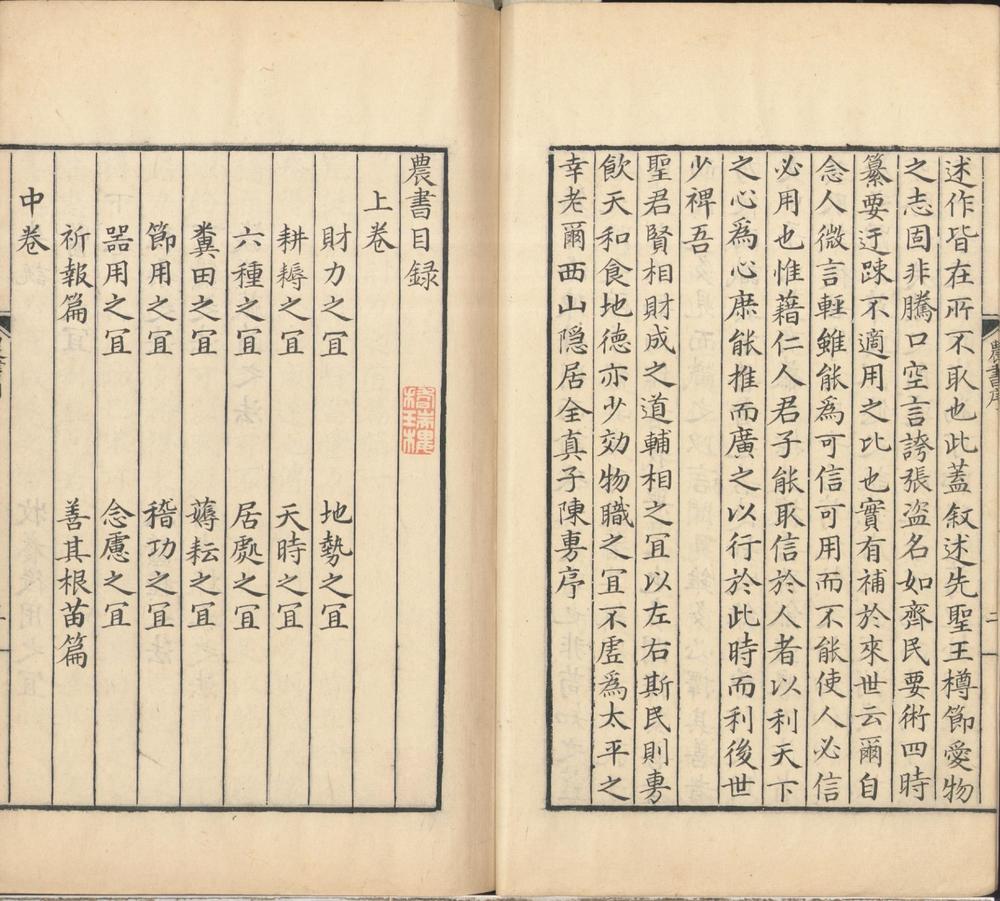 述作皆在所不取也此蓋叙述先聖王樽節愛物
之志固非騰口空言誇張盜名如齊民要術四時
纂要迂踈不適用之比也實有補於來世云爾自
念人微言輕雖能爲可信可用而不能使人必信
必用也惟藉仁人君子能取信於人者以利天下
之心爲心庶能推而廣之以行於此時而利後世
少裨吾
聖君賢相財成之道輔相之宜以左右斯民則旉
飲天和食地德亦少効物職之宜不虛爲太平之
幸老爾西山隱居全真子陳旉序
農書序
二
農書目録
上卷
財力之宜 地勢之宜
耕耨之宜 天時之宜
六種之宜 居處之宜
糞田之宜 薅耘之宜
節用之宜 稽功之宜
器用之宜 念慮之宜
祈報篇 善其根苗篇
中卷